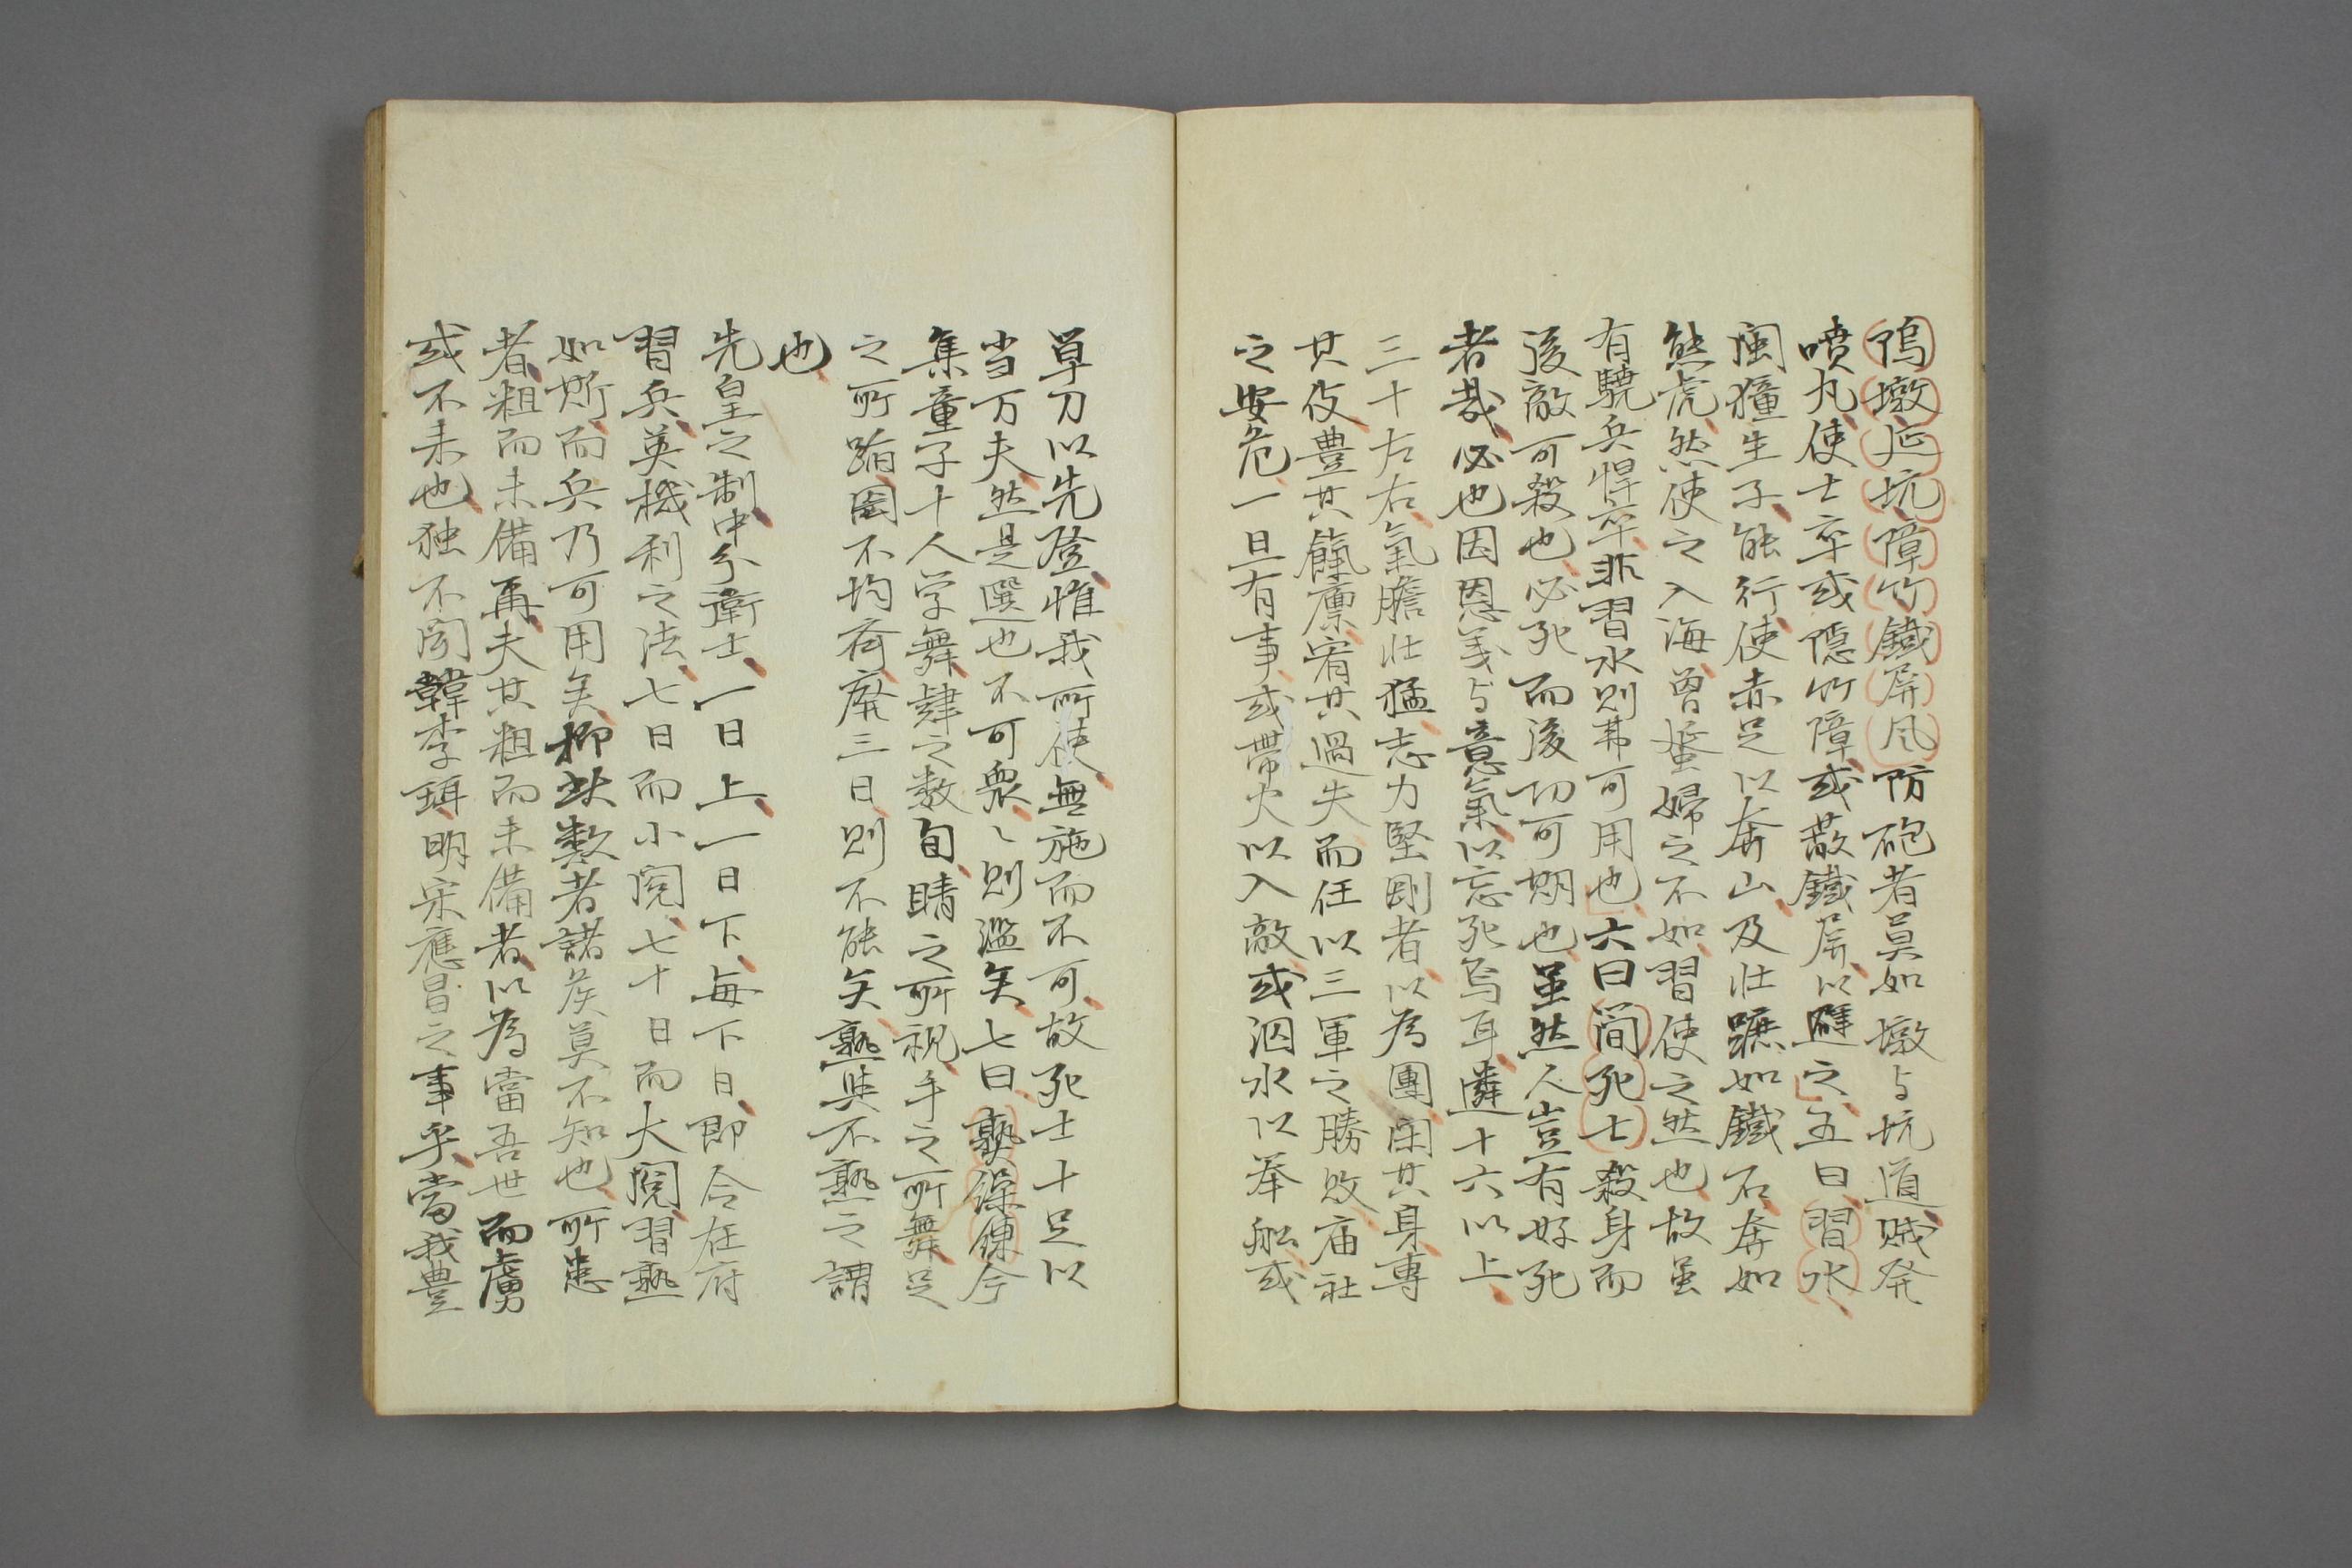 隝墩延坑障竹鐵屏风防砲者莫如墩与坑道賊発
喷丸使士卒或隱竹障或蔽鐵屏以避之五曰習水
闽獞生子能行使赤足以奔山及壮蹠如鐵石奔如
熊虎然使之入海曾蜑婦之不如習使之然也故虽
有驍兵悍卒非習水則弗可用也六曰間死士殺身而
後敵可殺也必死而後功可期也虽然人豈有好死
者哉必也因恩義与意氣以忘死焉耳遴十六以上
三十左右氣膽壮猛志力堅剛者以為團闲其身專
其伎豊其餼廪宥其過失而任以三軍之勝敗庙社
之安危一旦有事或帶火以入敵或泅水以牽船或
单刀以先登惟我所使無施而不可故死士十足以
当万夫然是選也不可衆〻則濫矣七曰熟操鍊今
集童子十人学舞肄之数旬睛之所視手之所舞足
之所蹈罔不均齐廃三日則不能矣熟與不熟之謂
也
先皇之制中分衛士一日上一日下每下日即令在府
習兵英機利之法七日而小閱七十日而大閱習熟
如斯而兵乃可用矣抑玆数者諸侯莫不知也所患
者粗而未備再夫其粗而未備者以為當吾世而虜
或不来也独不闻韓李珥明宋應昌之事乎當我豊